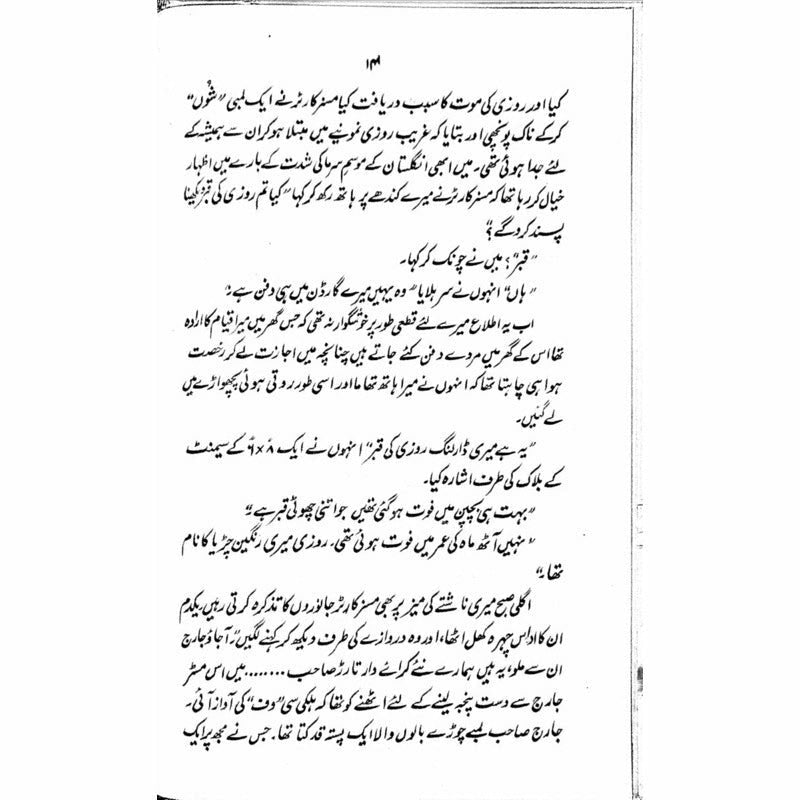 ۱۴۹
کیا اور روزی کی موت کا سبب دریافت کیا مسز کارٹر نے ایک لمبی "شُوں"
کر کے ناک پونچھی اور بتایا کہ غریب روزی نمونیے میں مبتلا ہو کر ان سے ہمیشہ کے
لئے جدا ہوئی تھی۔ میں ابھی انگلستان کے موسمِ سرما کی شدت کے بارے میں اظہار
خیال کر رہا تھا کہ مسز کارٹر نے میرے کندھے پر ہاتھ رکھ کر کہا "کیا تم روزی کی قبر دیکھنا
پسند کرو گے؟"
"قبر"؟ میں نے چونک کر کہا۔
"ہاں" انہوں نے سر ہلایا "وہ یہیں میرے گارڈن میں ہی دفن ہے۔"
اب یہ اطلاع میرے لئے قطعی طور پر خوشگوار نہ تھی کہ جس گھر میں میرا قیام کا ارادہ
تھا اس کے گھر میں مردے دفن کئے جاتے ہیں چنانچہ میں اجازت لے کر رخصت
ہوا ہی چاہتا تھا کہ انہوں نے میرا ہاتھ تھاما اور اسی طور روتی ہوئی پچھواڑے میں
لے گئیں۔
"یہ ہے میری ڈارلنگ روزی کی قبر" انہوں نے ایک ۸ً×۶ً کے سیمنٹ
کے بلاک کی طرف اشارہ کیا۔
"بہت ہی بچپن میں فوت ہو گئی تھیں جو اتنی چھوٹی قبر ہے۔"
"نہیں آٹھ ماہ کی عمر میں فوت ہوئی تھی۔ روزی میری رنگین چڑیا کا نام
تھا۔"
اگلی صبح میری ناشتے کی میز پر بھی مسز کارٹر جانوروں کا تذکرہ کرتی رہیں یکدم
ان کا اداس چہرہ کھل اٹھا، اور وہ دروازے کی طرف دیکھ کر کہنے لگیں "آجاؤ جارج
ان سے ملو، یہ ہیں ہمارے نئے کرائے دار تارڑ صاحب ........ میں اس مسٹر
جارج سے دست پنجہ لینے کے لئے اٹھنے کو تھا کہ ہلکی سی "وف" کی آواز آئی۔
جارج صاحب لمبے چوڑے بالوں والا ایک پستہ قد کتا تھا۔ جس نے مجھ پر ایک